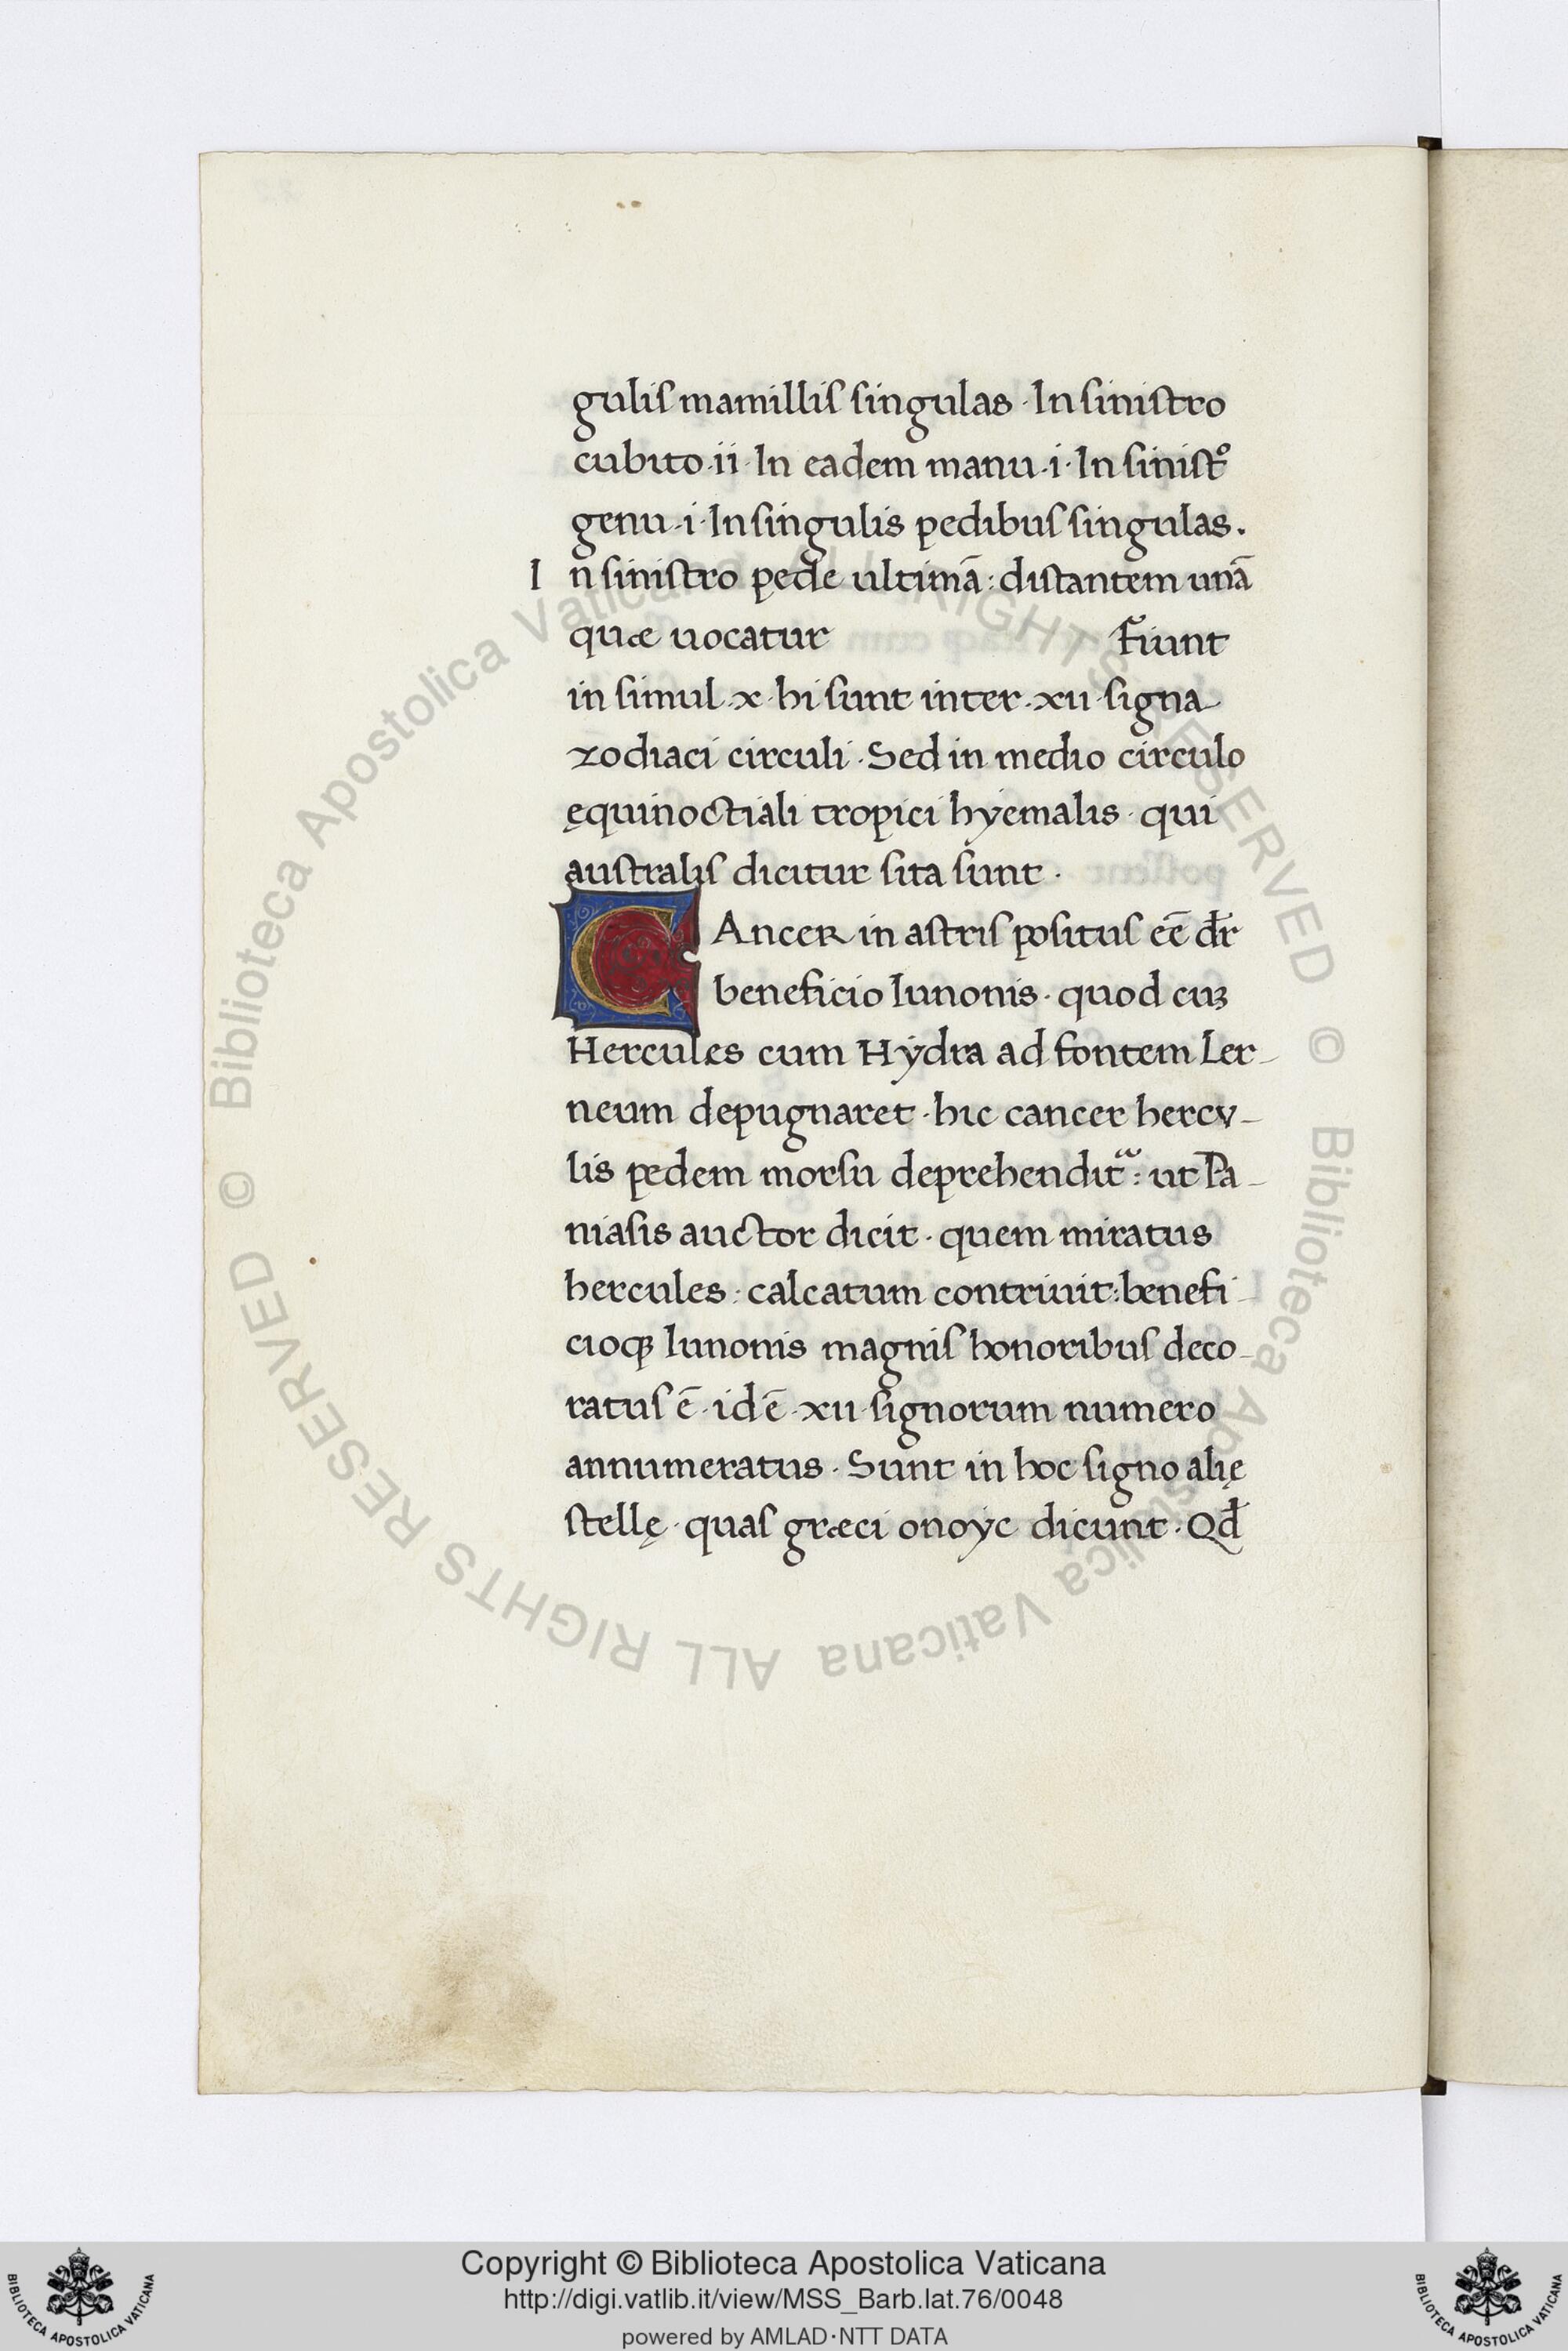 gulis mamillis singulas · In sinistro
cubito · ii · In eadem manu · i · In sinistº
genu · i · In singulis pedibus singulas.
In sinistro pede ultimā : distantem unā
quæ uocatur Fiunt
in simul · x · hi sunt inter · xii · signa
zodiaci circuli · Sed in medio circulo
ęquinoctiali tropici hyemalis · qui
australis dicitur sita sunt ·
CAncer in astris positus eē dr̄
beneficio Iunonis · quod cuꝫ
Hercules cum Hydra ad fontem Ler-
neum depugnaret · hic cancer hercv-
lis pedem morsu deprehenditᵃ : ut Pa-
niasis auctor dicit · quem miratus
hercules : calcatum contriuit : benefi-
cioqꝫ Iunonis magnis honoribus deco-
ratus ē · id ē · xii · signorum numero
annumeratus · Sunt in hoc signo alię
stellę · quas græci onoyc dicunt · Qđ
© Biblioteca Apostolica Vaticana ALL RIGHTS RESERVED
© Biblioteca Apostolica Vaticana ALL RIGHTS RESERVED
Copyright © Biblioteca Apostolica Vaticana
http://digi.vatlib.it/view/MSS_Barb.lat.76/0048
powered by AMLAD·NTT DATA
BIBLIOTECA APOSTOLICA VATICANA
BIBLIOTECA APOSTOLICA VATICANA